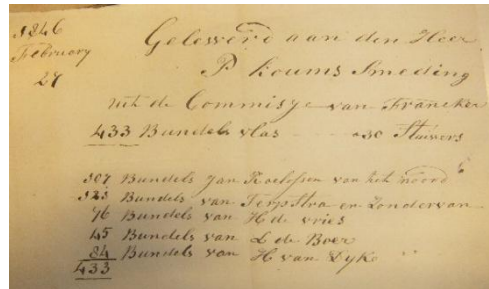 1846
February
27
Gelewerd aan den Heer
P Koums Smeding
uit de Commisye van Francker
433 Bundels vlas - - - a 30 Stuivers
107 Bundels Jan Roelofsen van het noord
125 Bundels van Terpstra en Zondervan
76 Bundels van H de vries
45 Bundels van L de Boer
84 Bundels van H van Dyke
433